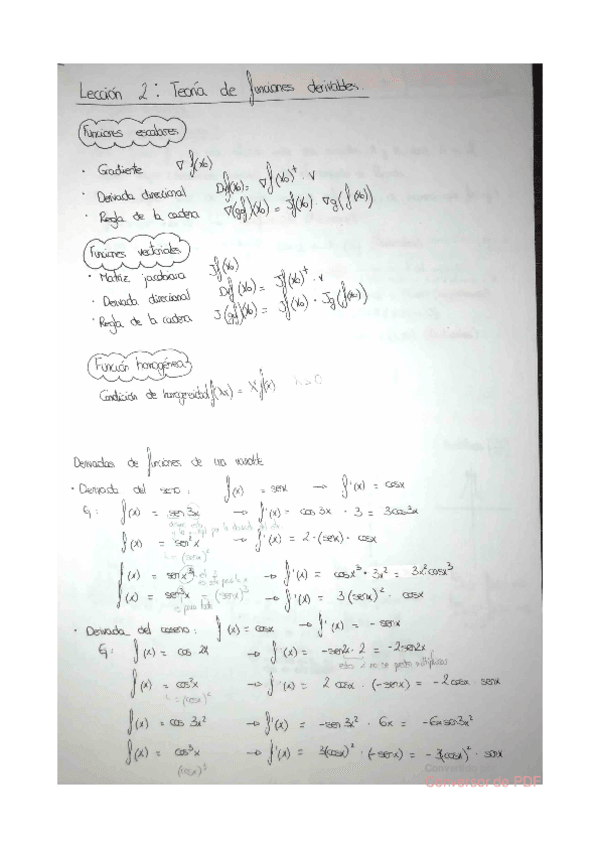 Lección 2: Teoría de funciones derivables.
Funciones escalares
· Gradiente ∇f(x₀)
· Derivada direccional Dᵥf(x₀) = ∇f(x₀)ᵗ · v
· Regla de la cadena ∇(gf)(x₀) = Jf(x₀) · ∇g(f(x₀))
Funciones vectoriales
· Matriz jacobiana Jf(x₀)
· Derivada direccional Dᵥf(x₀) = Jf(x₀)ᵗ · v
· Regla de la cadena J(gf)(x₀) = Jf(x₀) · Jg(f(x₀))
Función homogénea
Condición de homogeneidad f(λx) = f(x) λ>0
Derivadas de funciones de una variable
· Derivada del seno: f(x) = senx → f'(x) = cosx
Ej: f(x) = sen3x → f'(x) = cos 3x · 3 = 3cos3x
f(x) = sen²x → f'(x) = 2·(senx)·cosx
= (senx)²
f(x) = senx³ → f'(x) = cosx³ · 3x² = 3x²cosx³
f(x) = sen³x = (senx)³ → f'(x) = 3(senx)² · cosx
· Derivada del coseno: f(x) = cosx → f'(x) = - senx
Ej: f(x) = cos 2x → f'(x) = -sen2x · 2 = -2sen2x
estos 2 no se pueden multiplicar
f(x) = cos²x → f'(x) = 2 cosx · (-senx) = -2cosx senx
= (cosx)²
f(x) = cos 3x² → f'(x) = -sen3x² · 6x = -6xsen3x²
f(x) = cos³x → f'(x) = 3(cosx)² · (-senx) = -3(cosx)² · senx
(cosx)³
Conversor de PDF